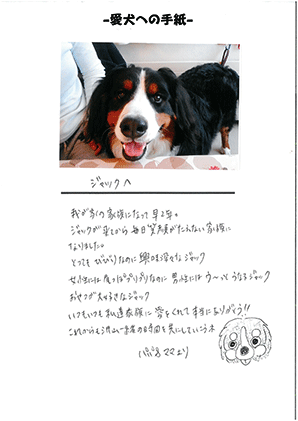 -愛犬への手紙-
ジャックへ
我が家の家族になって早2年。
ジャックが来てから毎日笑顔がたえない家族に
なりました。
とってもびびりなのに興味深々なジャック
女性には尾っぽぷりぷりなのに男性にはウ〜ッとうなるジャック
おやつが大好きなジャック
いつもいつも私達家族に夢をくれて本当にありがとう!!
これからも沢山一緒の時間を共にしていこうネ
パパ&ママより